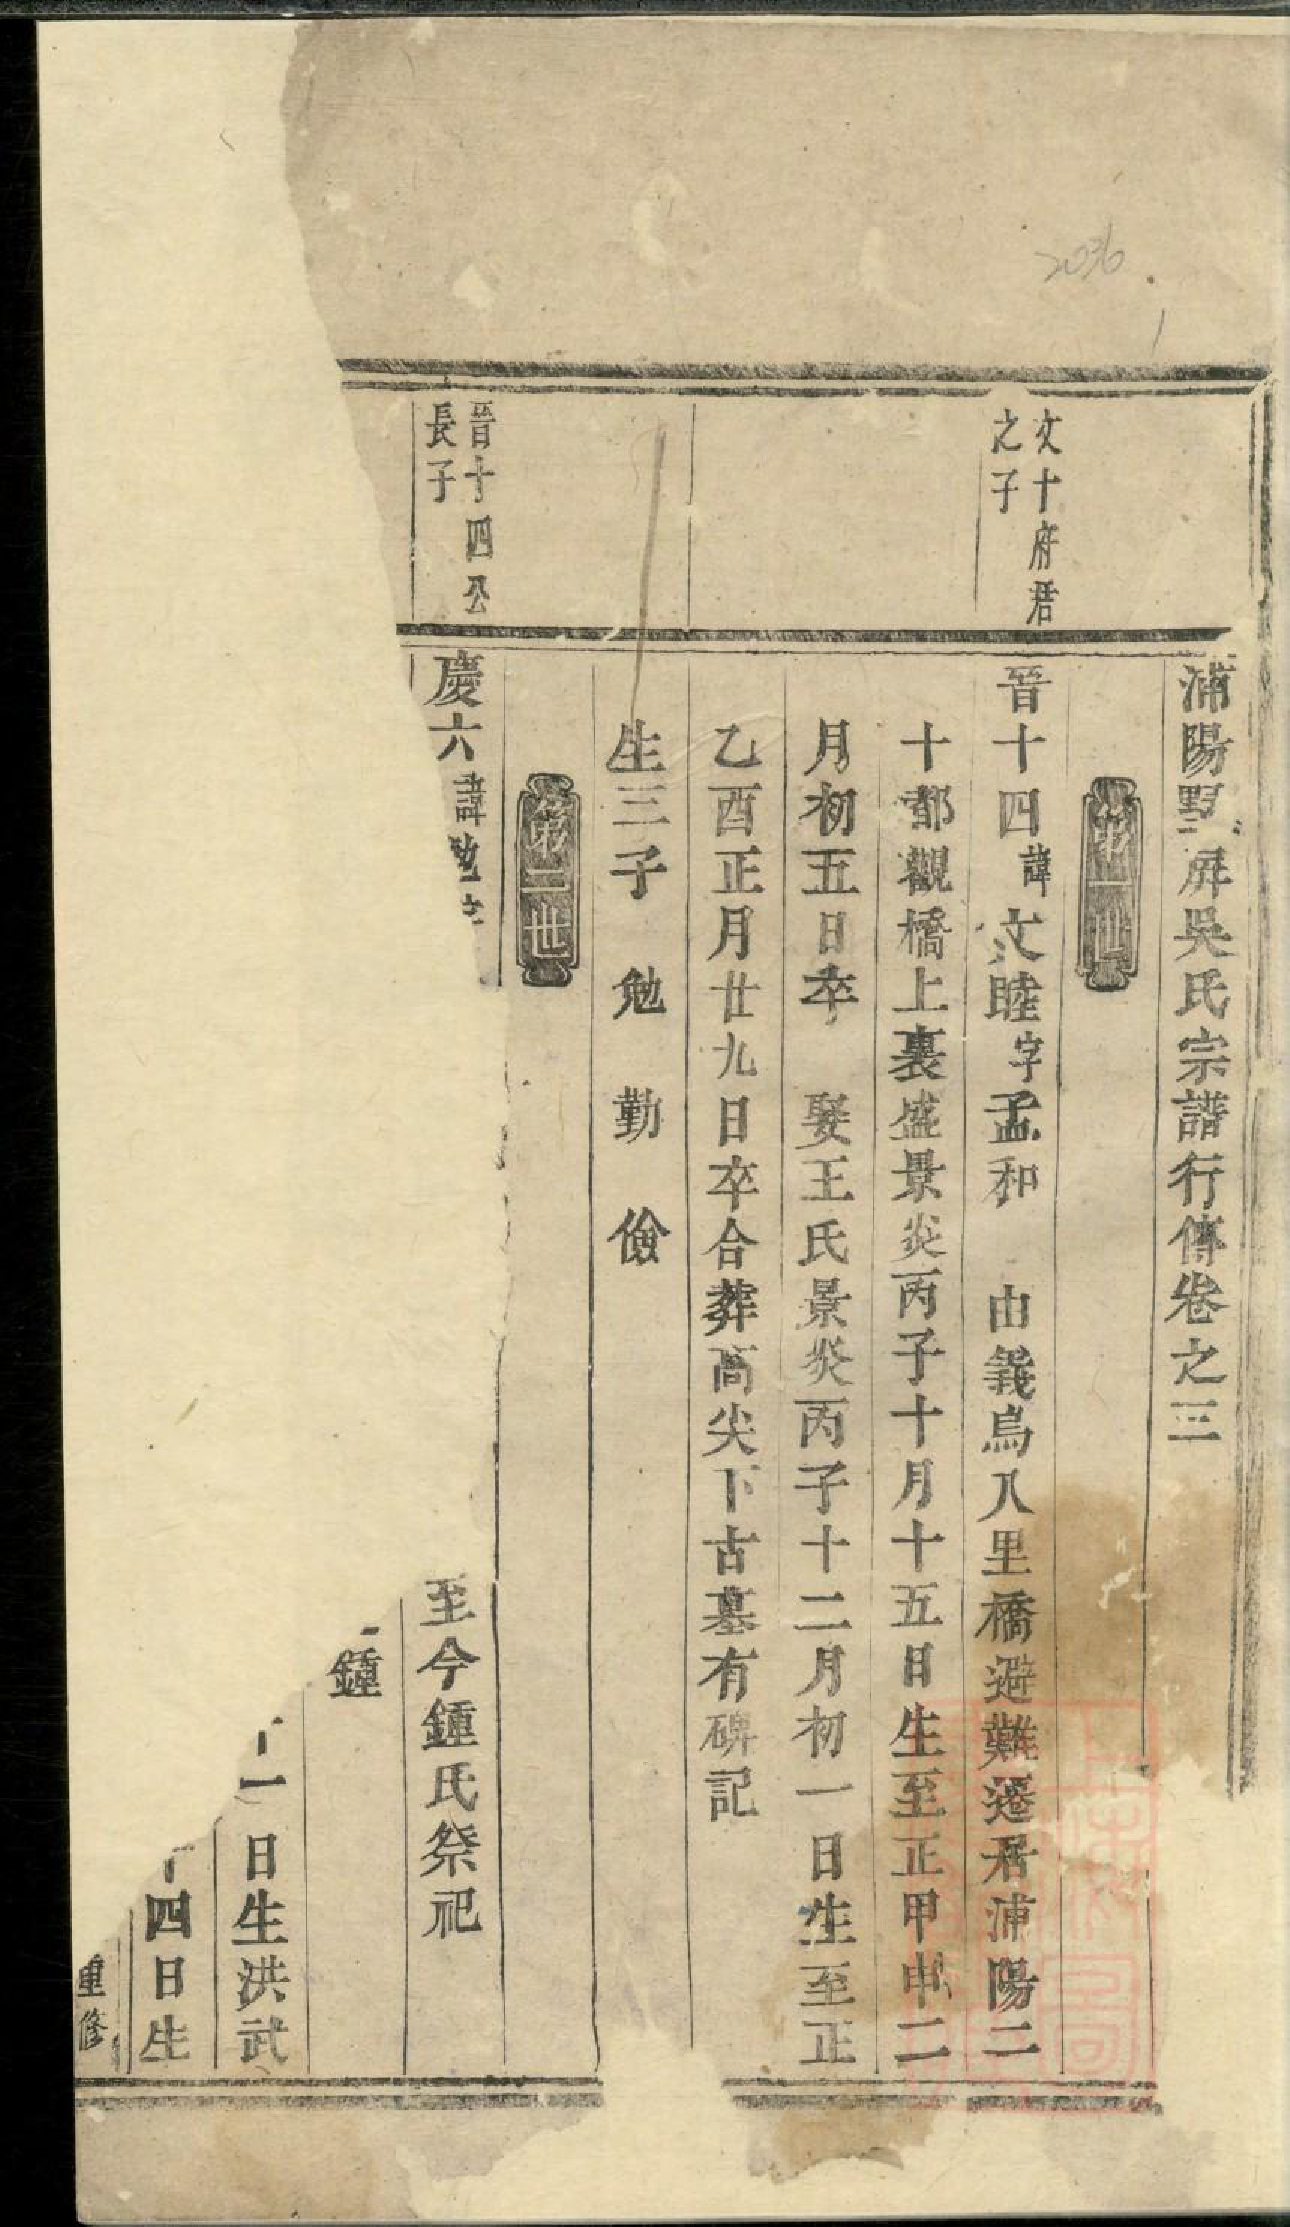 浦陽墅屏吳氏宗譜行傳卷之三
第一世
文十府君
之子
晉十四諱文睦字孟和 由義烏八里橋避難遷居浦陽二
十都觀橋上裏盛景炎丙子十月十五日生至正甲申二
月初五日卒 娶王氏景炎丙子十二月初一日生至正
乙酉正月廿九日卒合葬高尖下古墓有碑記
生三子 勉 勤 儉
第二世
晉十四公
長子
慶六諱勉
至今鍾氏祭祀
鍾
一日生洪武
四日生
重修
2036